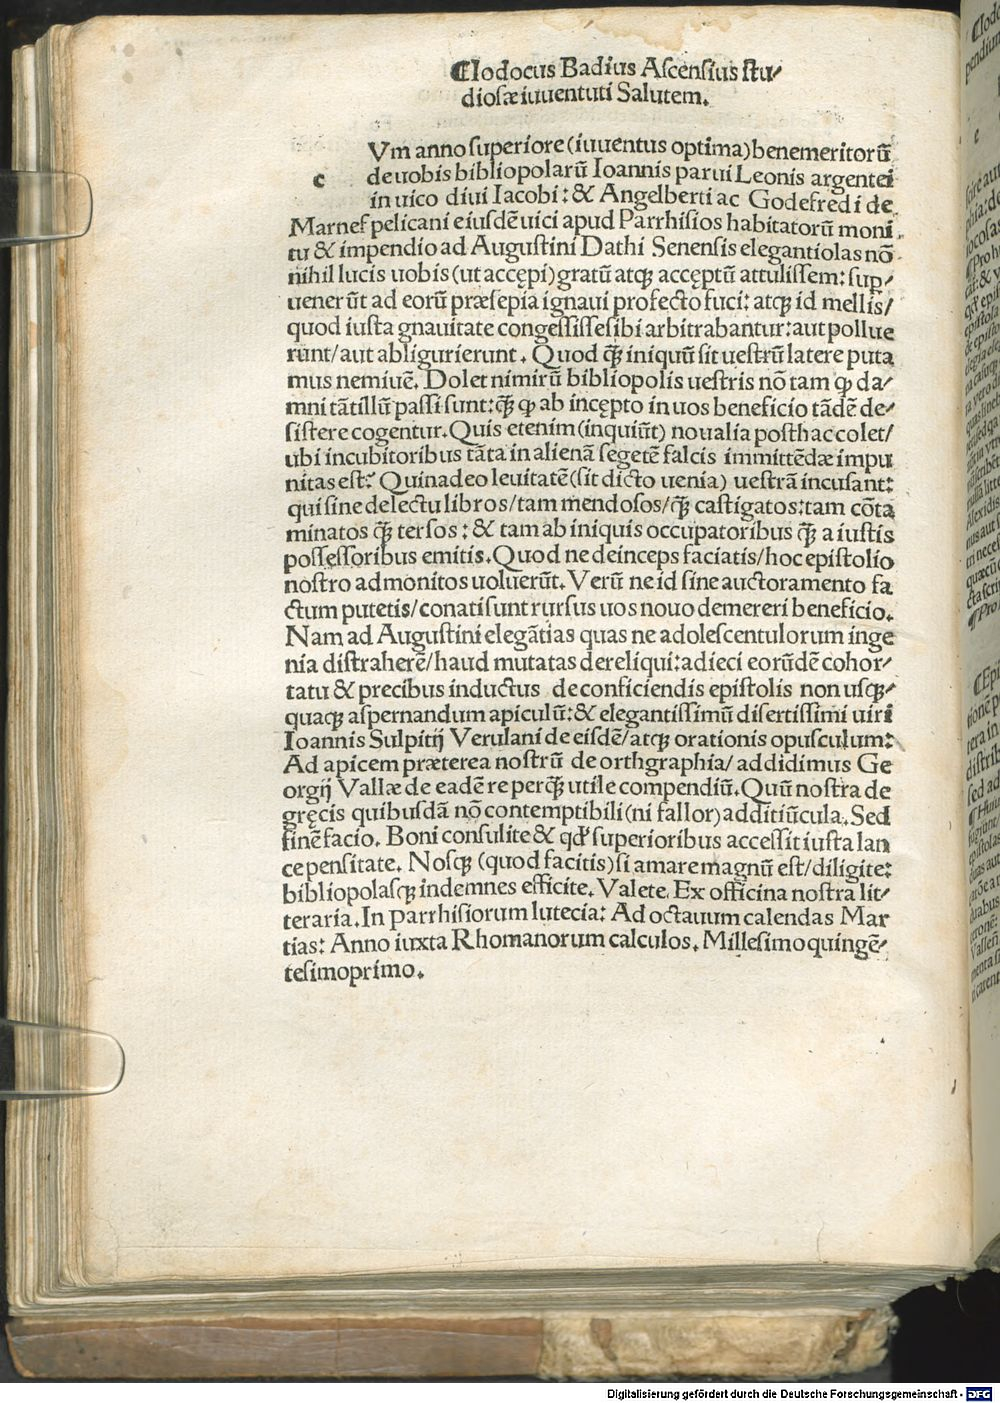 ¶Iodocus Badius Ascensius stu/
diosæ iuuentuti Salutem.
c
Vm anno superiore (iuuentus optima) benemeritorū
de uobis bibliopolarū Ioannis parui Leonis argentei
in uico diui Iacobi: & Angelberti ac Godefredi de
Marnef pelicani eiusdē uici apud Parrhisios habitatorū moni
tu & impendio ad Augustini Dathi Senensis elegantiolas nō
nihil lucis uobis (ut accępi) gratū atqꝫ accęptū attulissem: sup̱/
uenerūt ad eorū præsepia ignaui profecto fuci: atqꝫ id mellis/
quod iusta gnauitate congessisse sibi arbitrabantur: aut pollue
runt/aut abligurierunt. Quod q̄ꝫ iniquū sit uestrū latere puta
mus neminē. Dolet nimirū bibliopolis uestris nō tam ꝙ da/
mni tātillū passi sunt: q̄ꝫ ꝙ ab incępto in uos beneficio tādē de/
sistere cogentur. Quis etenim (inquiūt) noualia posthac colet/
ubi incubitoribus tāta in alienā segetē falcis immittēdæ impu
nitas est? Quinadeo leuitatē (sit dicto uenia) uestrā incusant:
qui sine delectu libros/tam mendosos/q̄ꝫ castigatos: tam cōta
minatos q̄ꝫ tersos: & tam ab iniquis occupatoribus q̄ꝫ a iustis
possessoribus emitis. Quod ne deinceps faciatis/hoc epistolio
nostro admonitos uoluerūt. Verū ne id sine auctoramento fa
ctum putetis/conati sunt rursus uos nouo demereri beneficio.
Nam ad Augustini elegātias quas ne adolescentulorum inge
nia distraherē/haud mutatas dereliqui: adieci eorūdē cohor/
tatu & precibus inductus de conficiendis epistolis non usqꝫ/
quaqꝫ aspernandum apiculū: & elegantissimū disertissimi uiri
Ioannis Sulpitij Verulani de eisdē/atqꝫ orationis opusculum:
Ad apicem præterea nostrū de orthgraphia/addidimus Ge
orgij Vallæ de eadē re perq̄ꝫ utile compendiū. Quū nostra de
gręcis quibusdā nō contemptibili (ni fallor) additiūcula. Sed
finē facio. Boni consulite & qd̕ superioribus accessit iusta lan
ce pensitate. Nosqꝫ (quod facitis) si amare magnū est/diligite:
bibliopolasqꝫ indemnes efficite. Valete. Ex officina nostra lit/
teraria. In parrhisiorum lutecia: Ad octauum calendas Mar
tias: Anno iuxta Rhomanorum calculos. Millesimoquingē/
tesimoprimo.
Digitalisierung gefördert durch die Deutsche Forschungsgemeinschaft - DFG